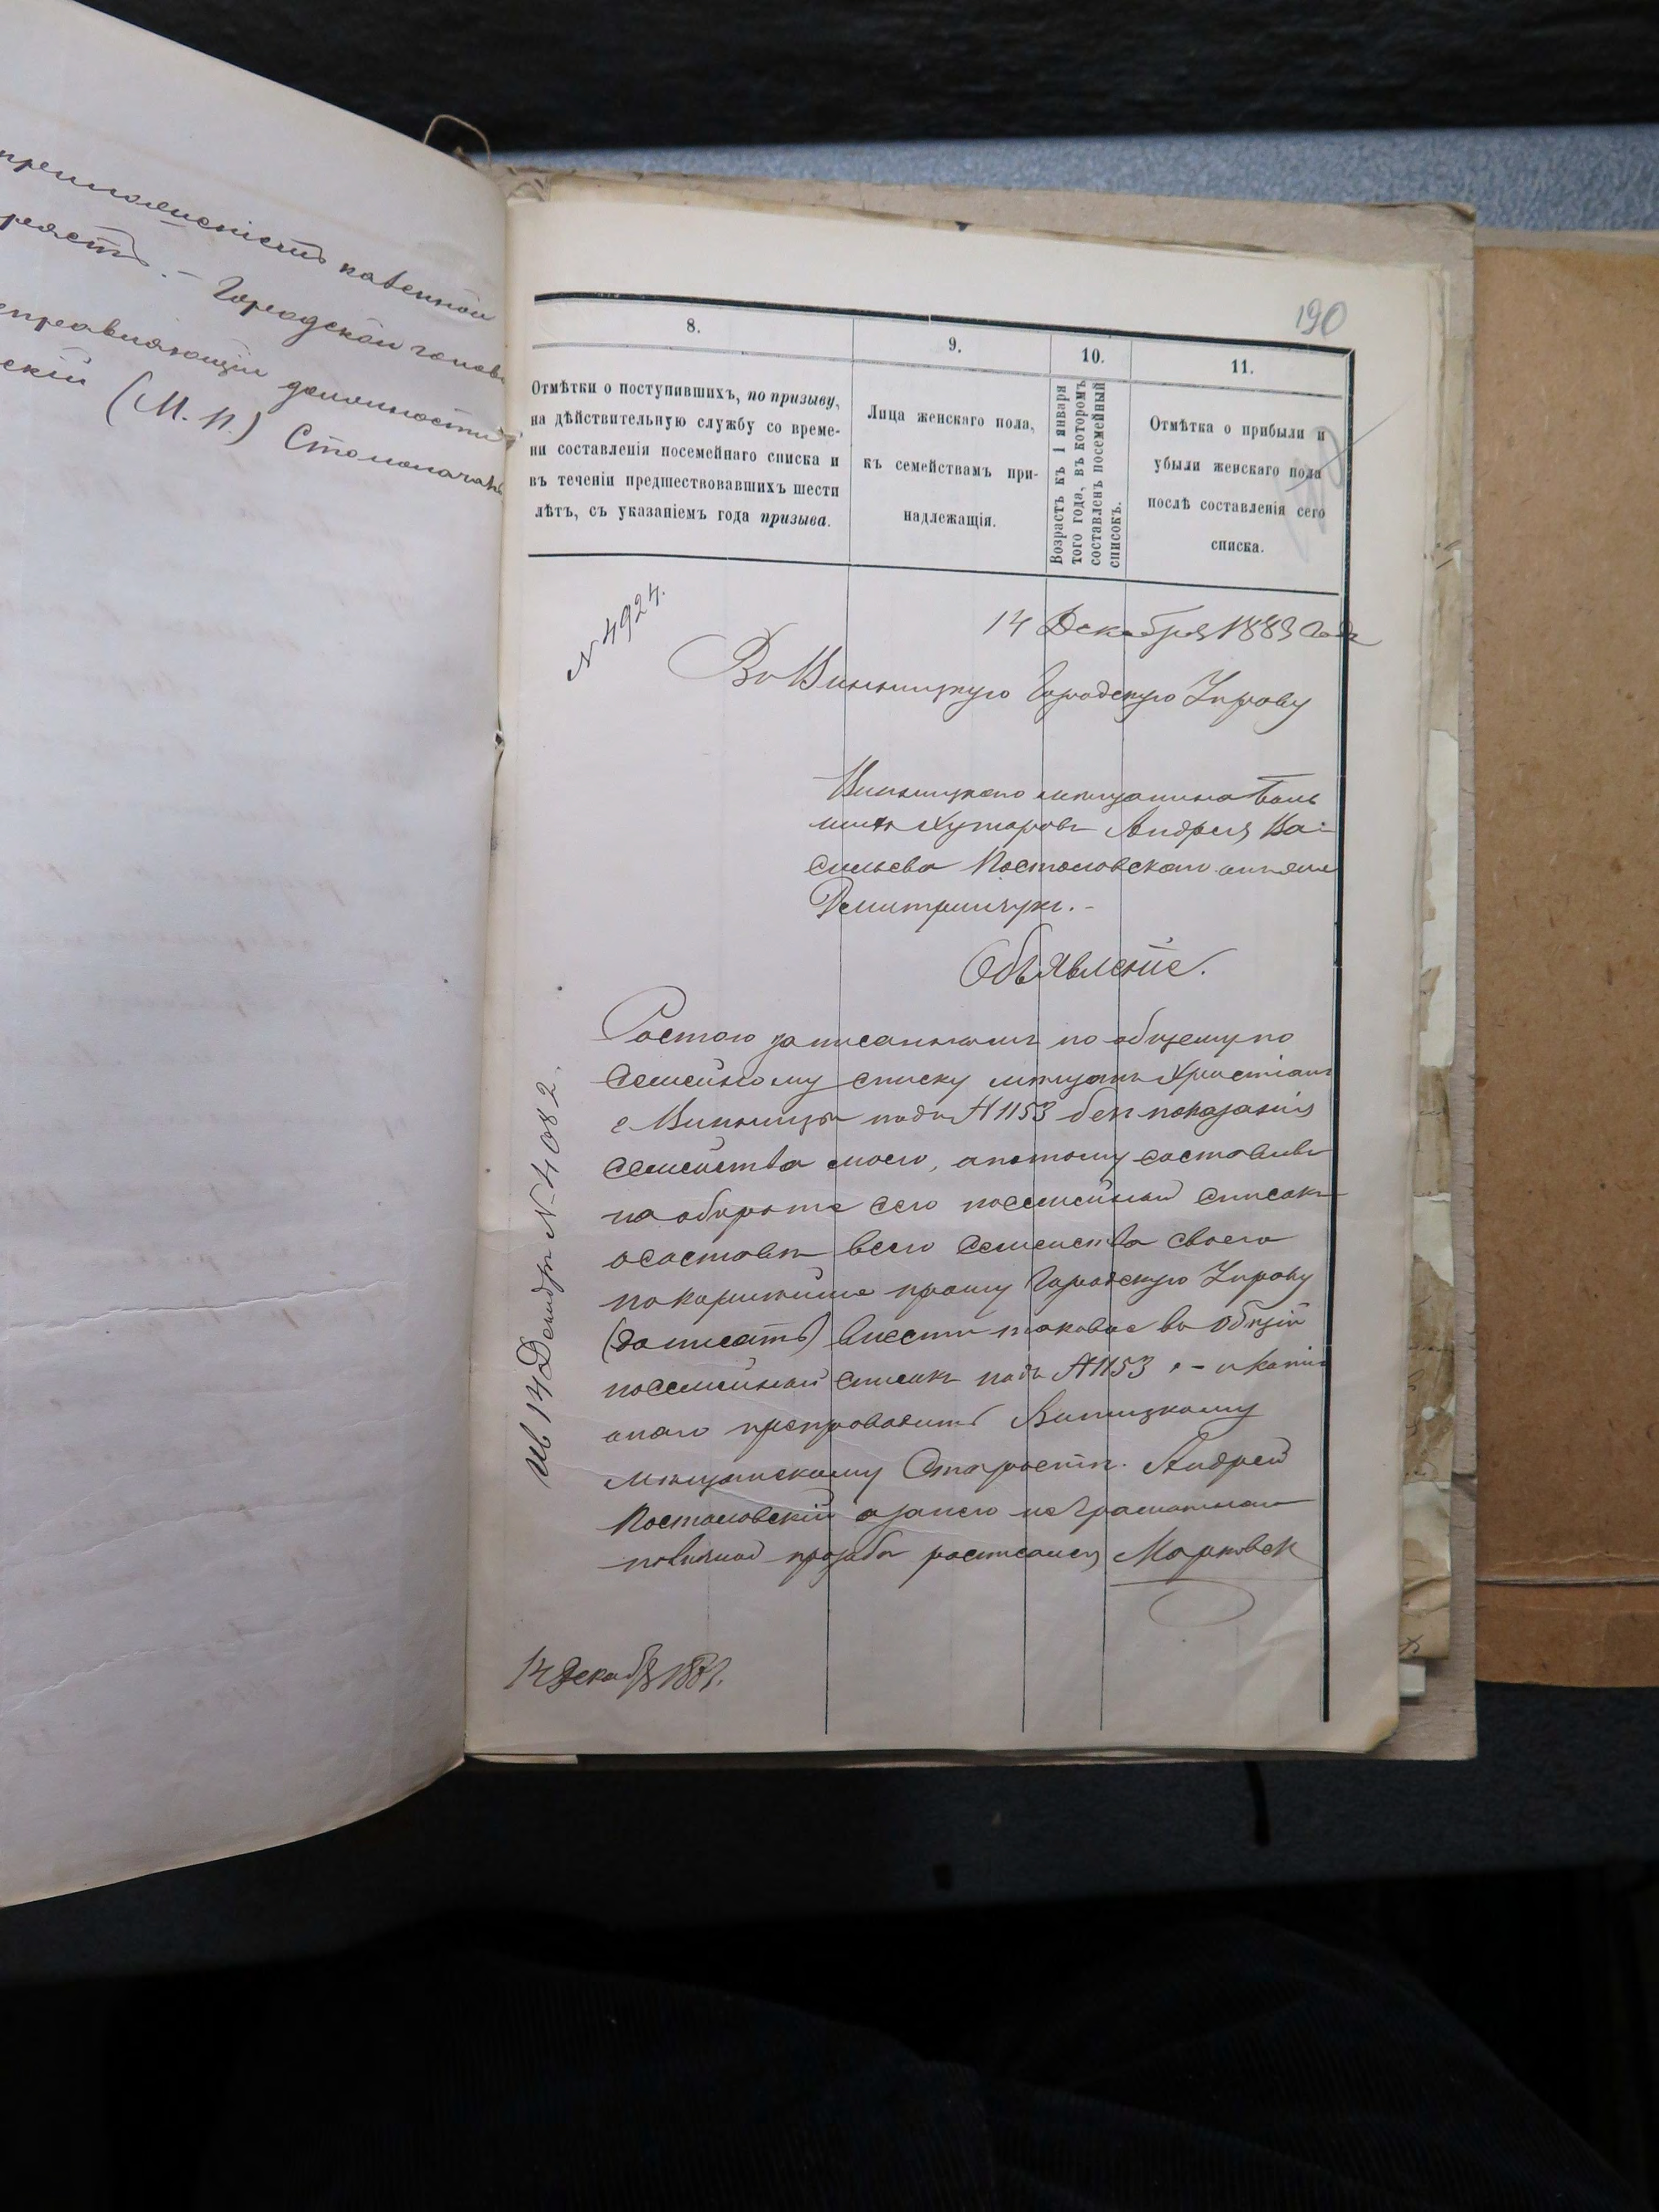 препмоленскiстъ
казенной
ростъ. – Городской голова
справляющiй должность
скiй (М. П.) Столоначаль
190
8.
9.
10.
11.
Отмѣтки о поступившихъ, по призыву,
на дѣйствительную службу со време-
ни составленія посемейнаго списка и
въ теченіи предшествовавшихъ шести
лѣтъ, съ указаніемъ года призыва.
Лица женскаго пола,
къ семействамъ при-
надлежащія.
Возрастъ къ 1 января
того года, въ которомъ
составленъ посемейный
списокъ.
Отмѣтка о прибыли и
убыли женскаго пола
послѣ составленія сего
списка.
N 4924.
14 Декабря 1883 Года
Въ Винницкую Городскую Управу
Винницкаго мѣщанина Боль
шихъ Хуторовъ Андрея Ва-
сильева Постоловскаго онъ же
Дмитришукъ. -
Объявленіе.
Состою записаннымъ по общему по
семейному списку мѣщанъ Христіанъ
г. Винницы подъ N 1153 безъ показанія
семейства моего, а потому составивъ
на оборотѣ сего посемейный списокъ
о составѣ всего семейства своего
покорнѣйше прошу Городскую Управу
(записать) внести таковое въ общій
посемейный списокъ подъ N 1153 . – и копію
онаго препроводить Винницкому
мѣщанскому Старостѣ. Андрей
Постоловскій а за него неграмотнаго
по личной прозьбѣ росписался Марковск
Ив 14 Декабря N 4082.
14 Декабря 1883.